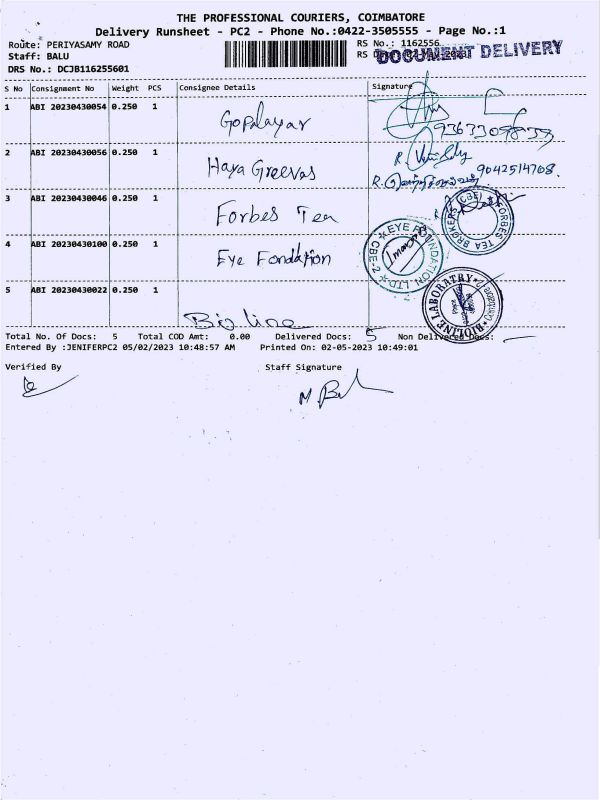 THE PROFESSIONAL COURIERS, COIMBATORE
Delivery Runsheet - PC2 - Phone No.:0422-3505555 - Page No.:1
Route: PERIYASAMY ROAD RS No.: 1162556
Staff: BALU RS DOCUMENT DELIVERY
DRS No.: DCJB116255601
S No Consignment No Weight PCS Consignee Details Signature
1 ABI 20230430054 0.250 1 Gopalayar
2 ABI 20230430056 0.250 1 Haya Greevas R. 9042514708.
3 ABI 20230430046 0.250 1 Forbes Tea FORBES TEA BROKERS CBE
4 ABI 20230430100 0.250 1 Eye Fondation EYE FOUNDATION LTD CBE-2
5 ABI 20230430022 0.250 1 Bio line BIOLINE LABORATRY
Total No. Of Docs: 5 Total COD Amt: 0.00 Delivered Docs: 5 Non Delivered Docs:
Entered By :JENIFERPC2 05/02/2023 10:48:57 AM Printed On: 02-05-2023 10:49:01
Verified By Staff Signature